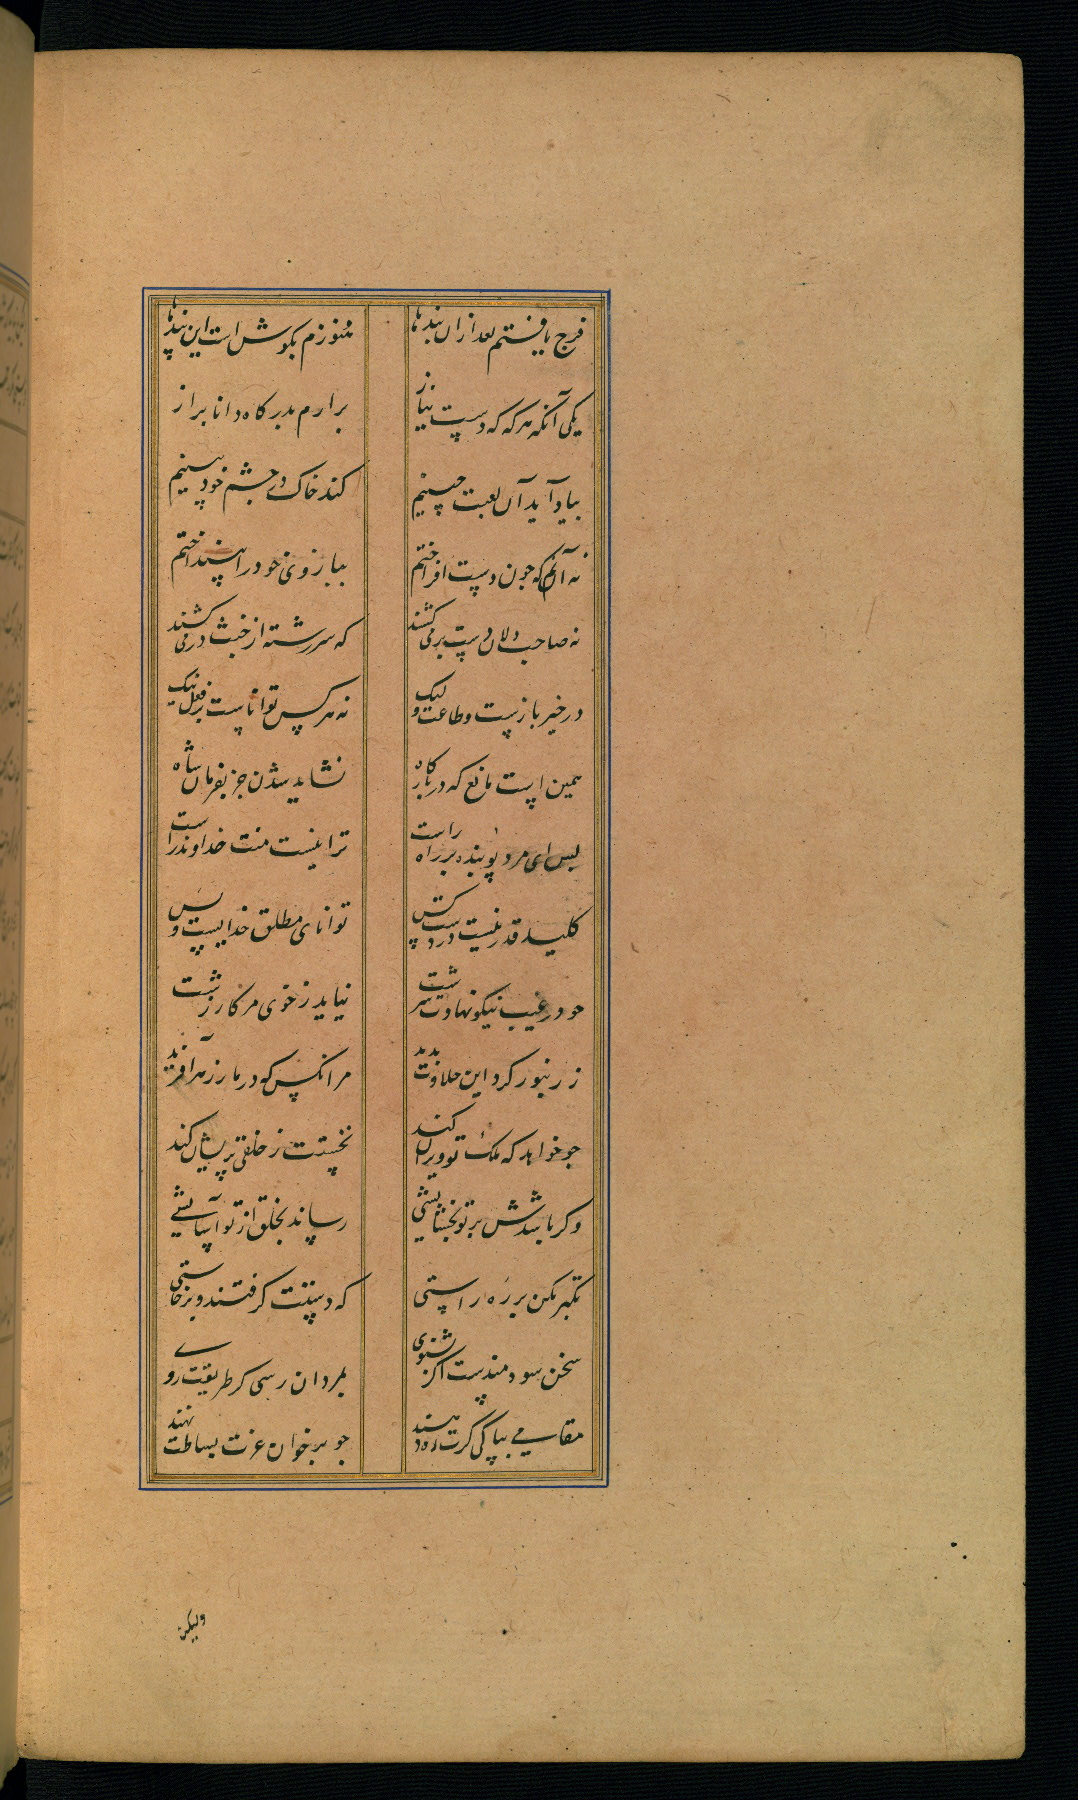 فرج یافتم بعد ازان بندها هنوزم بکوش است این پندها
یکی آنکه هرکه که دست نیاز برارم بدرکاه دانا براز
بیاد آید آن لعبت چینیم کند خاک در چشم خودبینیم
نه آنم که چون دست افراختم ببازوی خود را
نه صاحب دلان دست برمی کشند که سررشته از درمی کشند
در خیر بازست و طاعت ولیک نه هرکس تواناست بر فعل نیک
همین است مانع که در بارکاه نشاید شدن جز بفرمان شاه
بس ای مرد پوینده بر راه راست ترا نیست منت خداوند راست
کلید قدر نیست در دست کس توانای مطلق خدایست و بس
چو در غیب نیکو نهادت سرشت نیاید ز خوی مر کار زشت
ز زنبور کرد این حلاوت پدید مر انکس که در مار زهر آفرید
چو خواهد که ملک تو ویران کند نخستت ز خلقی پریشان کند
وکر باشدش بر تو بخشایشی رساند بخلق از تو آسایشی
تکبر مکن بر ره راستی که دستت کرفتند و برخاستی
سخن سودمندست اکر بشنوی بمردان رسی کر طریقت روی
مقامی بیابی کرت ره دهند چو بر خوان عزت بساطت نهند
ولیکن